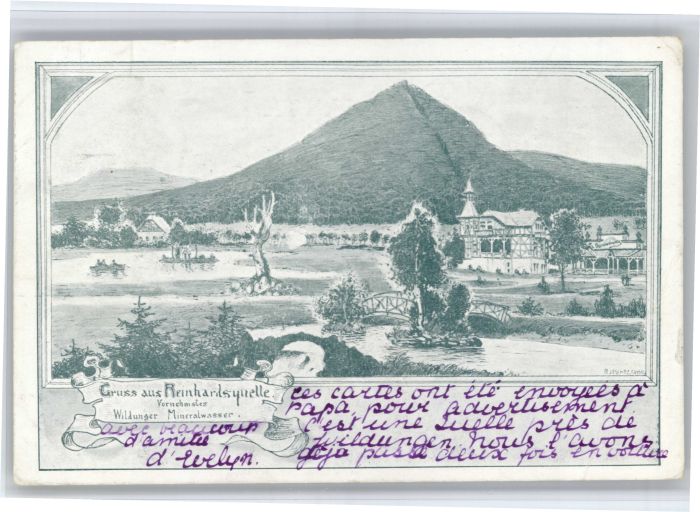 Gruss aus Reinhardsquelle.
Vornehmstes
Wildunger Mineralwasser.
ces cartes ont été envoyées à
Papa, pour advertisement
c'est une Quelle près de
Wildungen. nous l'avons
déja passé deux fois en voiture
avec beaucoup
d'amitié
d'Evelyn.